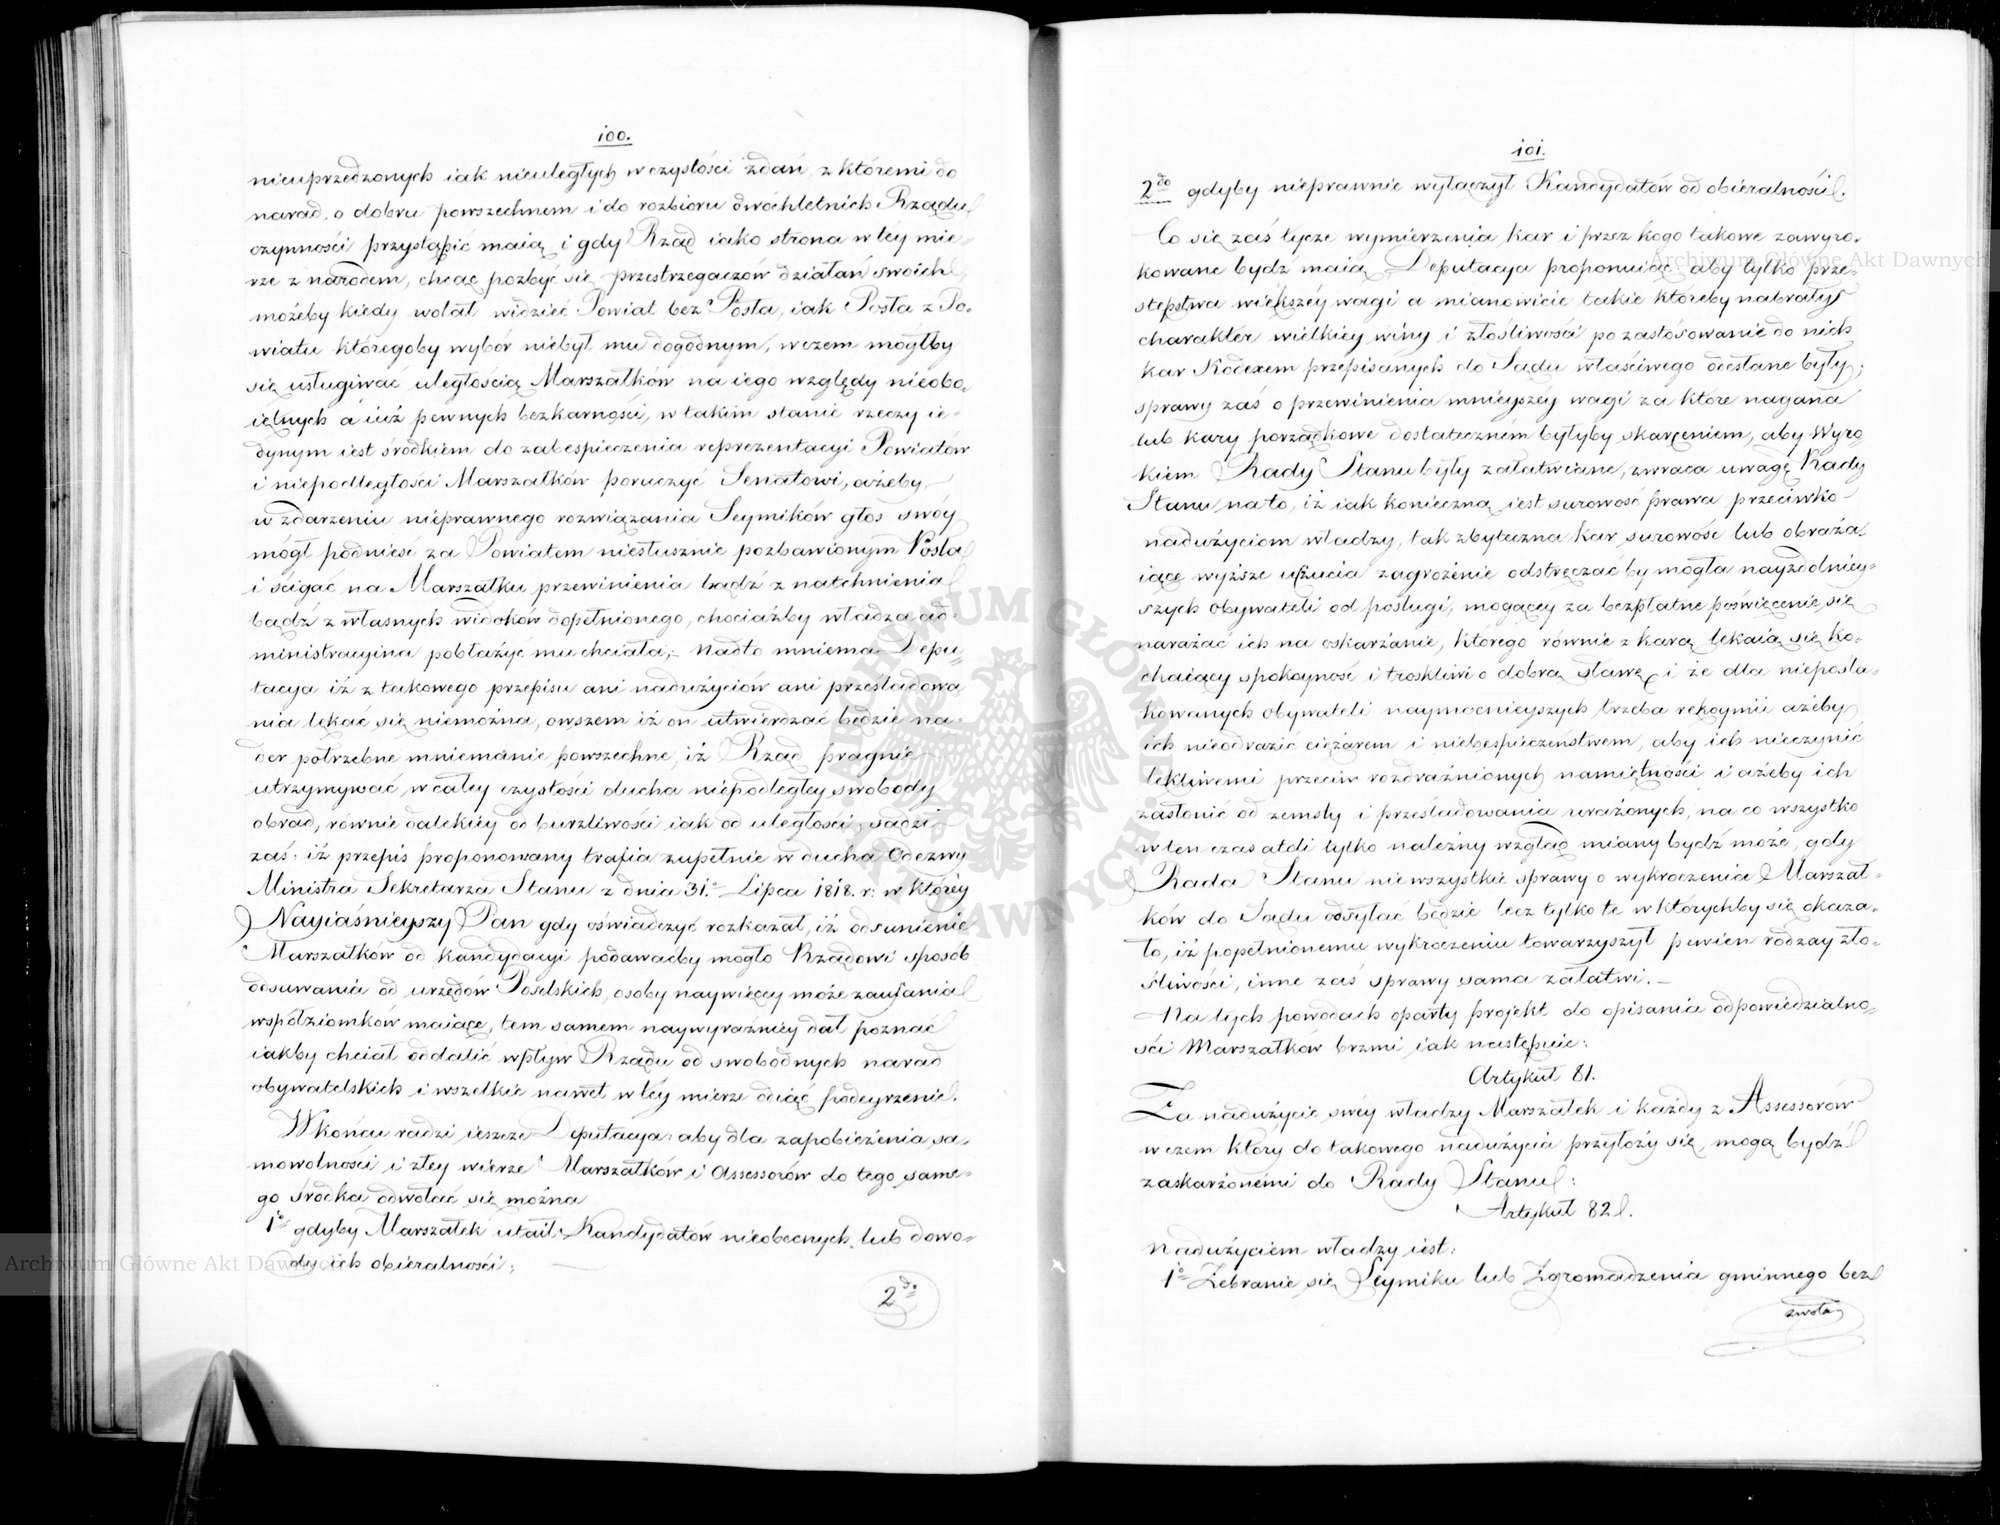 100.
nieuprzedzonych iak nieuległych w czystości zdań, z któremi do
narad, o dobru powszechnem i do rozbioru dwóchletnich Rządu
czynności przystąpić maią, i gdy Rząd iako strona w tey mie-
rze z narodem, chcąc pozbyć się przestrzegaczów działań swoich
możeby kiedy wolał widzieć Powiat bez Posła, iak Posła z Po-
wiatu któregoby wybór niebył mu dogodnym, w czem mógłby
się usługiwać uległością Marszałków na iego względy nieobo-
iętnych a iuż pewnych bezkarności, w takim stanie rzeczy ie-
dynym iest środkiem do zabespieczenia reprezentacyi Powiatów
i niepodległości Marszałków poruczyć Senatowi, ażeby
w zdarzeniu nieprawnego rozwiązania Seymików głos swóy
mógł podnieść za Powiatem niesłusznie pozbawionym Posła
i ścigać na Marszałku przewinienia bądź z natchnienia
bądź z własnych widoków dopełnionego, chociażby władza ad-
ministracyina pobłażyć mu chciała; Nadto mniema Depu-
tacya iż z takowego przepisu ani nadużyciów ani prześladowa
nia lękać się niemożna, owszem iż on utwierdzać będzie na-
der potrzebne mniemanie powszechne, iż Rząd pragnie
utrzymywać w całey czystości ducha niepodległey swobody
obrad, równie dalekiey od burzliwości iak od uległości; sądzi
zaś: iż przepis proponowany trafia zupełnie w ducha Odezwy
Ministra Sekretarza Stanu z dnia 31.º Lipca 1818. r: w którey
Nayiaśnieyszy Pan gdy oświadczyć rozkazał, iż odsunienie
Marszałków od kandydacyi podawaćby mogło Rządowi sposób
odsuwania od urzędów Poselskich, osoby naywięcey może zaufania
współziomków maiące, tem samem naywyraźniey dał poznać
iakby chciał oddalić wpływ Rządu od swobodnych narad
obywatelskich i wszelkie nawet w téy mierze odiąć podeyrzenie.
W końcu radzi ieszcze Deputacya: aby dla zapobieżenia sa-
mowolności i złey wierze Marszałków i Assessorów do tego same-
go środka odwołać się można
1º gdyby Marszałek utaił Kandydatów nieobecnych lub dowo-
dy ich obieralności;
2do
101.
2do gdyby nieprawnie wyłączył Kandydatów od obieralności.
Co się zaś tycze wymierzenia kar i przez kogo takowe zawyro-
kowane bydź maią, Deputacya proponuiąc aby tylko prze-
stępstwa większéy wagi a mianowicie takie któreby nabrały
charakter wielkiey winy i złośliwości po zastósowanie do nich
kar Kodexem przepisanych do Sądu właściwego odesłane były;
sprawy zaś o przewinienia mnieyszey wagi za które nagana
lub kary porządkowe dostatecznem byłyby skarceniem, aby Wyro
kiem Rady Stanu były załatwiane, zwraca uwagę Rady
Stanu na to, iż iak konieczną iest surowość prawa przeciwko
nadużyciom władzy, tak zbyteczna kar surowość lub obraża-
iące wyższe uczucia zagrożenie odstręczać by mogła nayzdolniey-
szych obywateli od posługi, mogącey za bezpłatne poświęcenie się
narażać ich na oskarżanie, którego równie z karą lękaią się ko-
chaiący spokoyność i troskliwi o dobrą sławę, i że dla nieposla-
kowanych obywateli naymocnieyszych trzeba rękoymii ażeby
ich nieodrazić ciężarem i niebespieczeństwem, aby ich nieczynić
lękliwemi przeciw rozdrażnionych namiętności i ażeby ich
zasłonić od zemsty i prześladowania urażonych, na co wszystko
w ten czas atdi tylko należny wzgląd miany bydź może, gdy
Rada Stanu niewszystkie sprawy o wykroczenia Marszał-
ków do Sądu odsyłać będzie lecz tylko te w którychby się okaza-
ło, iż popełnionemu wykroczeniu towarzyszył pewien rodzay zło-
śliwości, inne zaś sprawy sama załatwi.
Na tych powodach oparty projekt do opisania odpowiedzialno-
ści Marszałków brzmi iak następuie:
Artykuł 81.
Za nadużycie swéy władzy Marszałek i każdy z Assessorów
w czem który do takowego nadużycia przyłoży się, mogą bydź
zaskarżonémi do Rady Stanu:
Artykuł 82.
Nadużyciem władzy iest:
1º Zebranie się Seymiku lub Zgromadzenia gminnego bez
zwoła